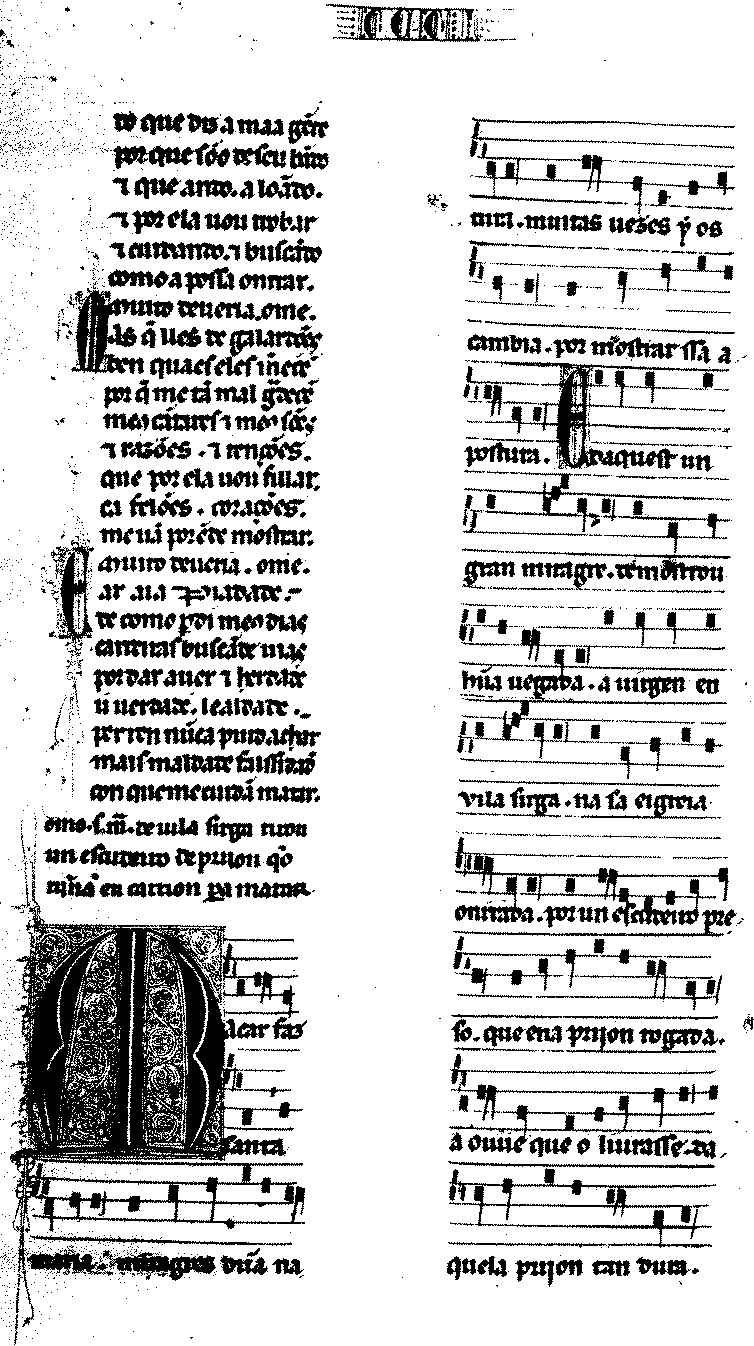 to que dis a maa gẽte
por que sõo de seu bãdo
⁊ que ando. a loãdo.
⁊ por ela uou trobar
⁊ cuidando. ⁊ buscãdo
como a possa onrrar.
muito deueria. ome.
Mas q̃ lles de galardões
ben quaes eles merecẽ
por q̃ me tã mal
⁊ razões. ⁊ tenções.
que por ela uou fillar.
ca felões. corações.
me uã porẽde mostrar.
muito deueria. ome.
Ear aia piadade.
de como perdi meus dias
carreiras buscãdo mas
por dar auer ⁊ herdade
u uerdade. lealdade.
per ren nũca puid achar
mais maldade falssidade
con que me cuidã matar.
como. s. m̃. de uila sirga tirou
un escudeiro de prijon q̃ o
tijnã en carrion pera matar
Macar faz
santa
maria. miragres dũa na
tura. muitas uezes y os
cambia. por mostrar ssa a
postura. E daquest un
gran miragre. de mostrou
hũa uegada. a uirgen en
vila sirga. na sa eigreia
onrrada. por un escudeiro pre
so. que ena prijon rogada.
a ouue que o liurasse. da
quela prijon tan dura.